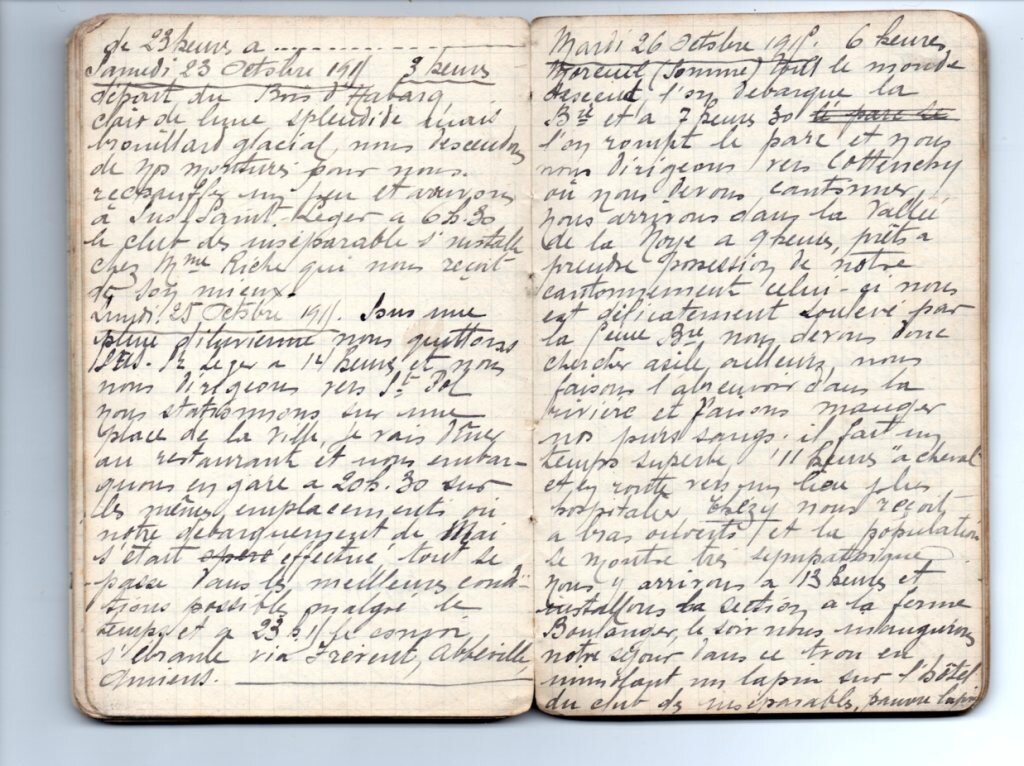 de 23 heures a ....................
Samedi 23 Octobre 1915 3 heures
départ du Bois d'Habarq
clair de lune splendide mais
brouillard glacial, nous descendons
de nos montures pour nous
rechauffer un peu et arrivons
à Sus-Saint-Léger a 6h.30
le club des inséparable s'installe
chez Mme Riche qui nous reçoit
de son mieux.
Lundi 25 Octobre 1915. Sous une
pluie diluvienne nous quittons
St Leger a 14 heures et nous
nous dirigeons vers St Pol
nous stationnons sur une
place de la ville, je vais dîner
au restaurant et nous embar-
quons en gare a 20h.30 sur
les mêmes emplacements où
notre débarquement de Mai
s'était effectué, tout se
passe dans les meilleures condi-
tions possibles malgré le
temps et a 23 h.15 le convoi
s'ébranle via Frévent, Abbéville
Amiens.
Mardi 26 Octobre 1915. 6 heures
Moreuil (Somme) tout le monde
descend, l'on debarque la
Brie et a 7 heures 30 le parc le
l'on rompt le parc et nous
nous dirigeons vers Cottenchy
où nous devons cantonner,
nous arrivons dans la Vallée
de la Noye a 9 heures, prêts a
prendre possession de notre
cantonnement celui-ci nous
est délicatement soulevé par
la 5eme Brie nous devons donc
chercher asile ailleurs, nous
faisons l'abreuvoir dans la
rivière et faisons manger
nos purs sangs. il fait un
temps superbe 11 heures a cheval
et en route vers un lieu plus
hospitalier Thézy nous reçoit
a bras ouverts et la population
se montre très sympathique
nous y arrivons a 13 heures et
installons la section a la ferme
Boulanger, le soir nous inaugurons
notre séjour dans ce trou en
immolant un lapin sur l'hôtel
du club des inséparables, pauvre lapin